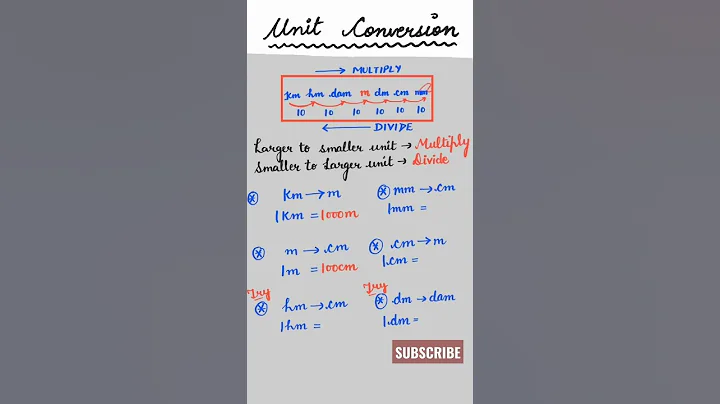 Unit Conversion
→ MULTIPLY
Km hm dam m dm cm mm
10 10 10 10 10 10
← DIVIDE
Larger to smaller unit → Multiply
Smaller to Larger unit → Divide
Km → m
1Km = 1000m
mm → cm
1mm =
m → cm
1m = 100cm
cm → m
1cm =
Try
hm → cm
1hm =
Try
dm → dam
1dm =
SUBSCRIBE